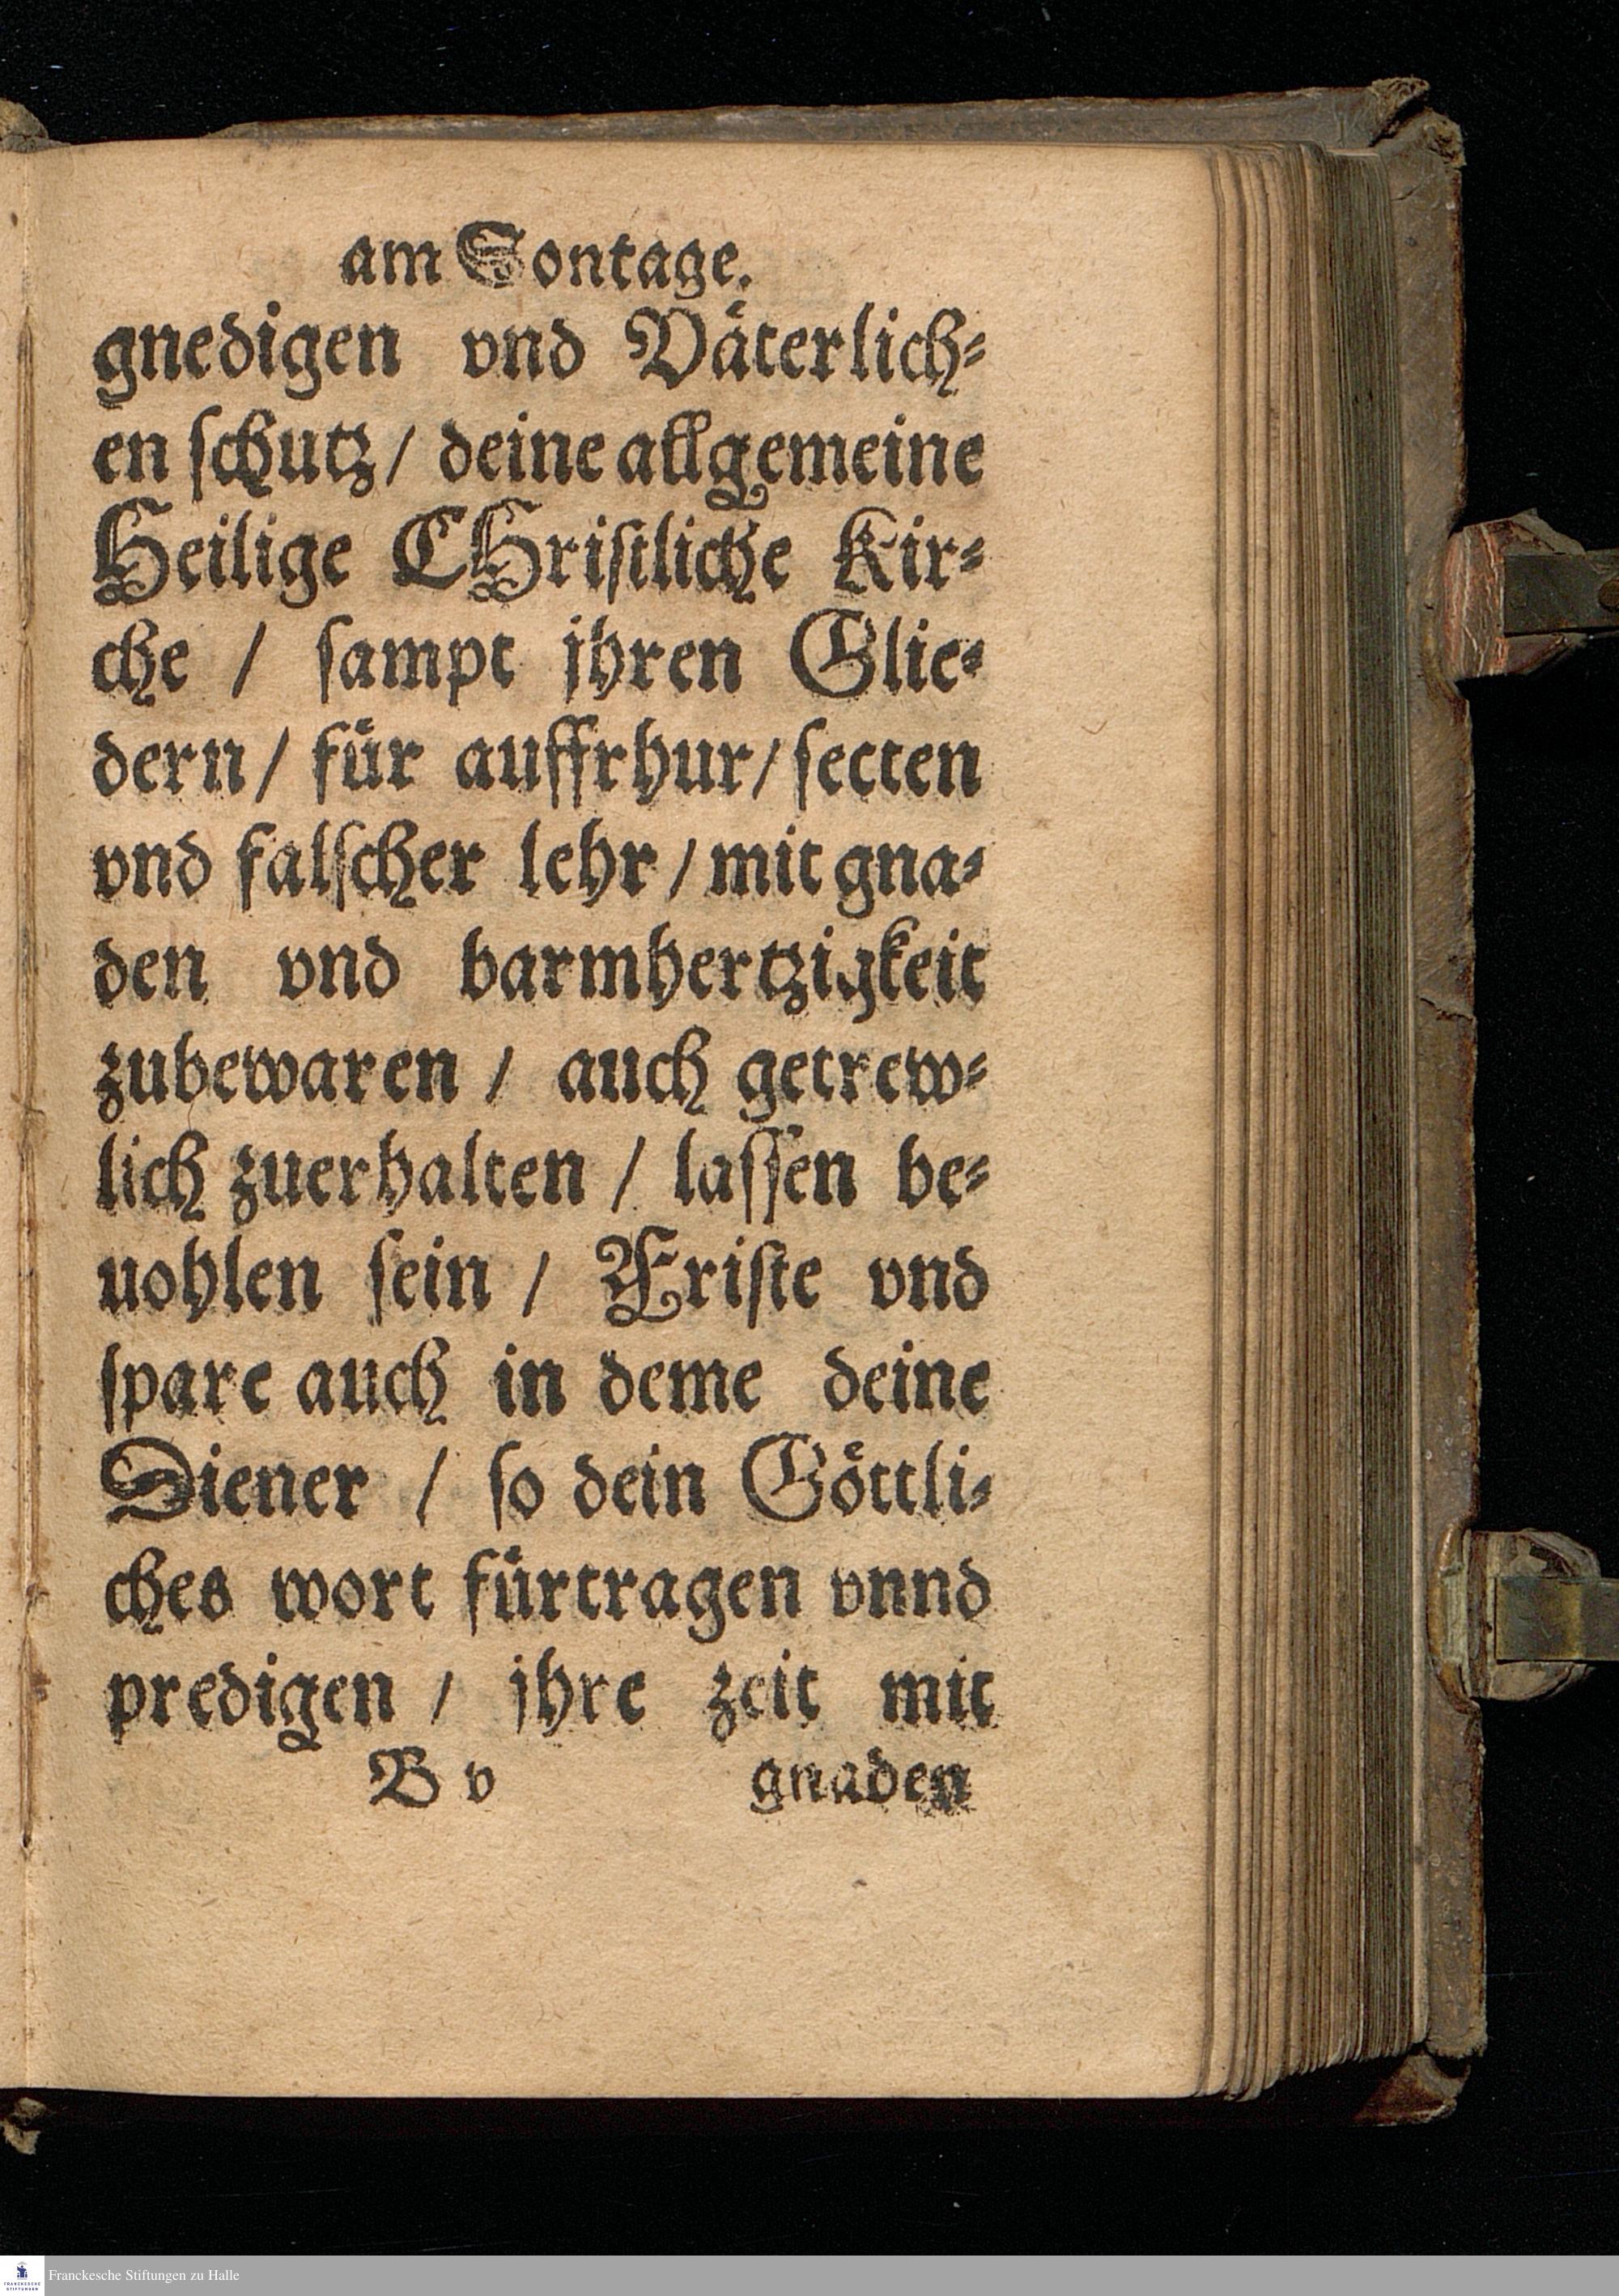 am Sontage.
gnedigen vnd Väterlich-
en schutz / deine allgemeine
Heilige CHristliche Kir-
che / sampt jhren Glie-
dern / für auffrhur / secten
vnd falscher lehr / mit gna-
den vnd barmhertzigkeit
zubewaren / auch getrew-
lich zuerhalten / lassen be-
uohlen sein / Friste vnd
spare auch in deme deine
Diener / so dein Göttli-
ches wort fürtragen vnnd
predigen / jhre zeit mit
B v gnaden
FRANCKESCHE STIFTUNGEN
Franckesche Stiftungen zu Halle